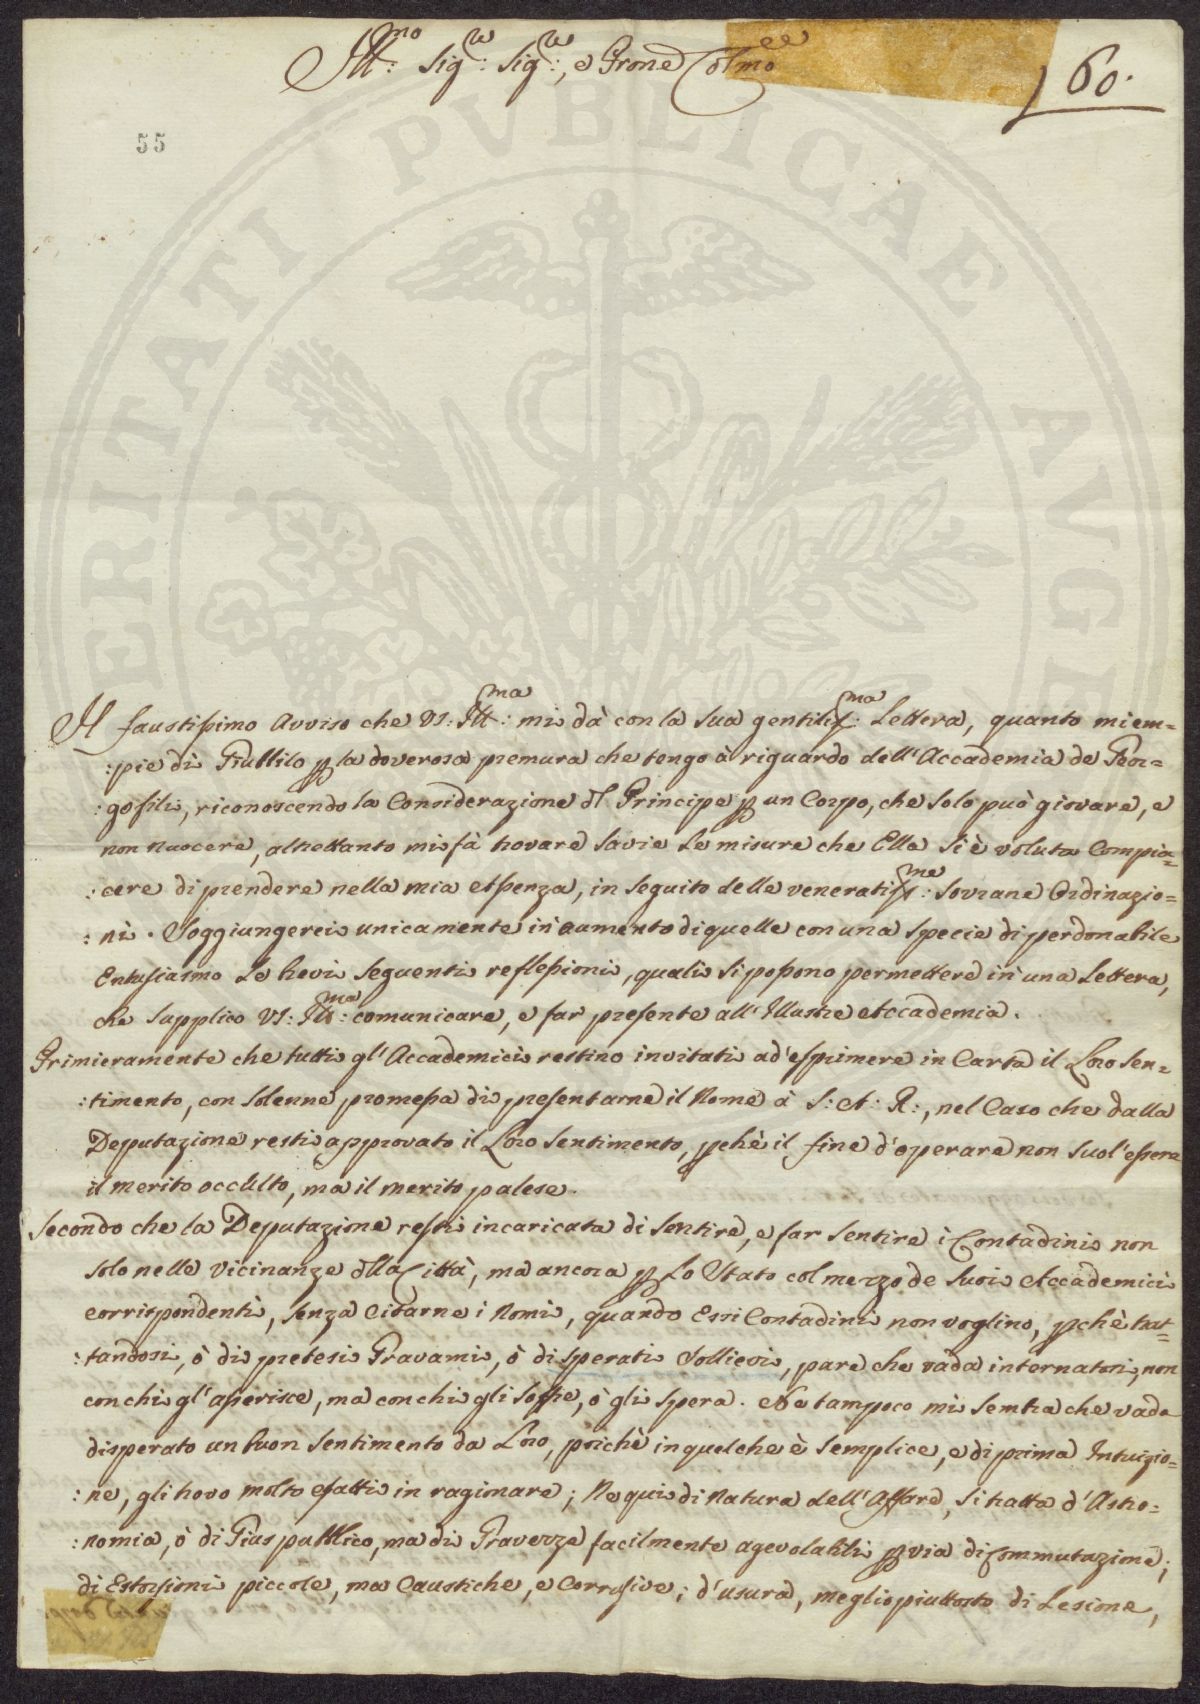 Ill:mo Sig:re Sig:re, e Prone Colmo
60.
55
PVBLICAE
Il faustissimo avviso che VS: Ill:ma mi dà con la sua gentiliss:ma Lettera, quanto mi em=
:pie di Giubbilo p la doverosa premura che tengo à riguardo dell'Accademia de Geor=
:gofili, riconoscendo la Considerazione dl Principe p un Corpo, che solo può giovare, e
non nuocere, altrettanto mi fà trovare savie le misure che Ella si è voluta Compia=
:cere di prendere nella mia assenza, in seguito delle veneratiss:me Sovrane Ordinazio=
:ni. Soggiungerei unicamente in aumento di quelle con una specie di perdonabile
Entusiasmo le brevi seguenti reflessioni, quali si possono permettere in una Lettera,
che supplico VS: Ill:ma comunicare, e far presente all'Illustre Accademia.
Primieramente che tutti gl'Accademici restino invitati ad'esprimere in Carta il Loro sen=
:timento, con solenne promessa di presentarne il Nome à S: A: R:, nel Caso che dalla
Deputazione resti approvato il Loro sentimento, pchè il fine d'operare non suol'essere
il merito occulto, ma il merito palese.
Secondo che la Deputazione resti incaricata di sentire, e far sentire i Contadini non
solo nelle vicinanze dlla Città, ma ancora p Lo Stato col mezzo de suoi Accademici
corrispondenti, senza Citarne i Nomi, quando Essi Contadini non voglino, pchè trat=
:tandosi, ò di pretesi Gravami, ò di sperati Sollievi, pare che vada internatosi, non
con chi gl'asserisce, ma con chi gli soffre, ò gli spera. Ne tampoco mi sembra che vada
disperato un buon sentimento da Loro, poichè in quel che è semplice, e di prima Intuizio=
:ne, gli trovo molto esatti in ragionare; Ne quì di Natura dell'Affare, si tratta d'Astro=
:nomia, ò di Gius pubblico, ma di Gravezze facilmente agevolabili p via di Commutazione;
di Estorsioni piccole, ma Caustiche, e Corrosive; d'usura, meglio piuttosto di Lesione,